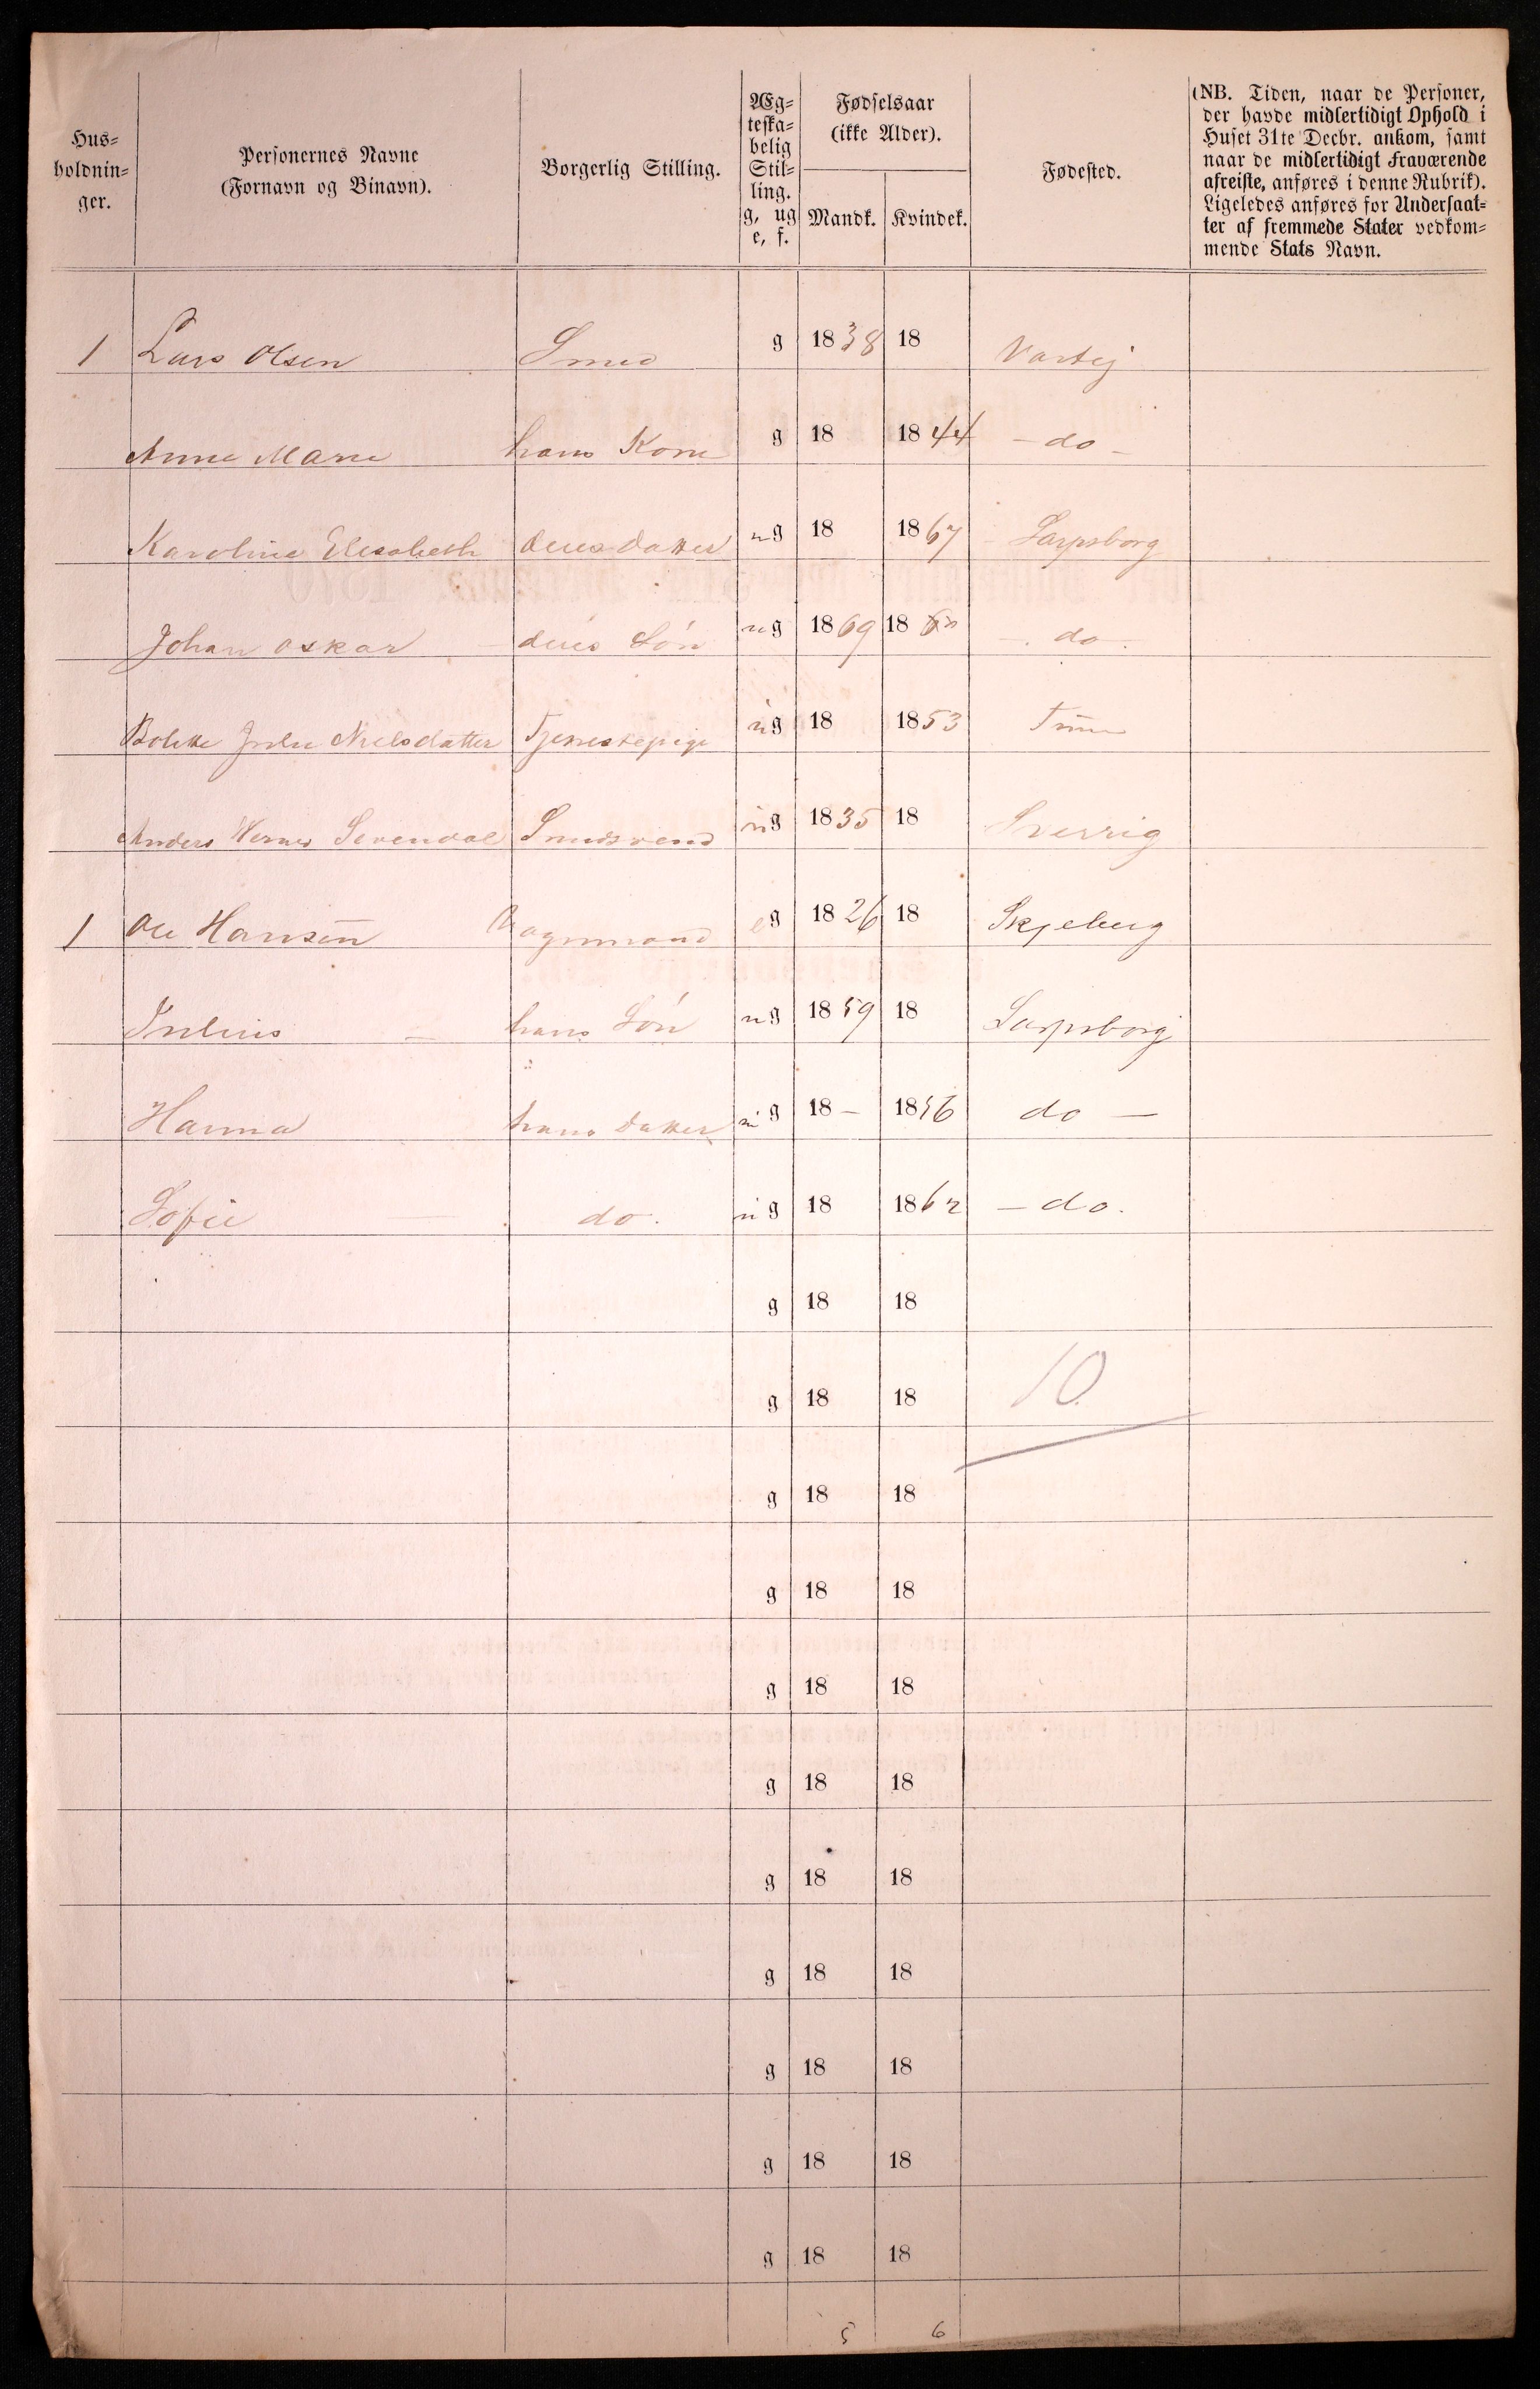 Hus-
holdnin-
ger.
Personernes Navne
(Fornavn og Binavn).
Borgerlig Stilling.
Æg-
teska-
belig
Stil-
ling.
g, ug
e, f.
Fødselsaar
(ikke Alder).
Mandk. Kvindek.
Fødested.
(NB. Tiden, naar de Personer,
der havde midlertidigt Ophold i
Huset 31te Decbr. ankom, samt
naar de midlertidigt Fraværende
afreiste, anføres i denne Rubrik).
Ligeledes anføres for Undersaat-
ter af fremmede Stater vedkom-
mende Stats Navn.
1 Lars Olsen Smed g 1838 18 Vartej
Anne Marie hans Kone g 18 1844 - do -
Karoline Elesabeth deres datter ug 18 1867 Sarpsborg
Johan Oskar deres Søn ug 1869 18 - do -
Bolette Julie Nielsdatter Tjenestepige ug 18 1853 Tune
Anders Werner Smedsvend ug 1835 18 Sverrig
1 Ole Hansen Bagnmand eg 1826 18 Skjeberg
Julius - hans Søn ug 1859 18 Sarpsborg
Hanna hans datter ug 18 - 1856 do -
Sofie do. ug 18 1862 - do.
g 18 18
g 18 18 10
g 18 18
g 18 18
g 18 18
g 18 18
g 18 18
g 18 18
g 18 18
g 18 18
g 18 18
5 6